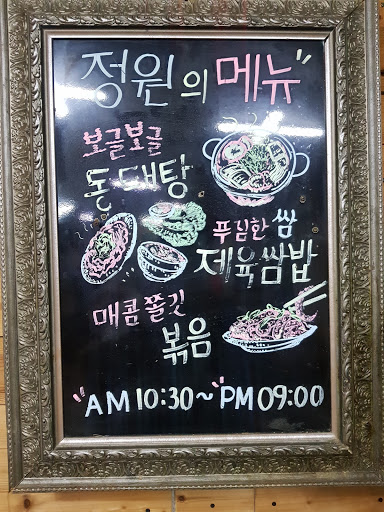 정원의 메뉴
보글보글
동태탕
푸짐한 쌈
제육쌈밥
매콤쫄깃
볶음
AM 10:30~PM 09:00